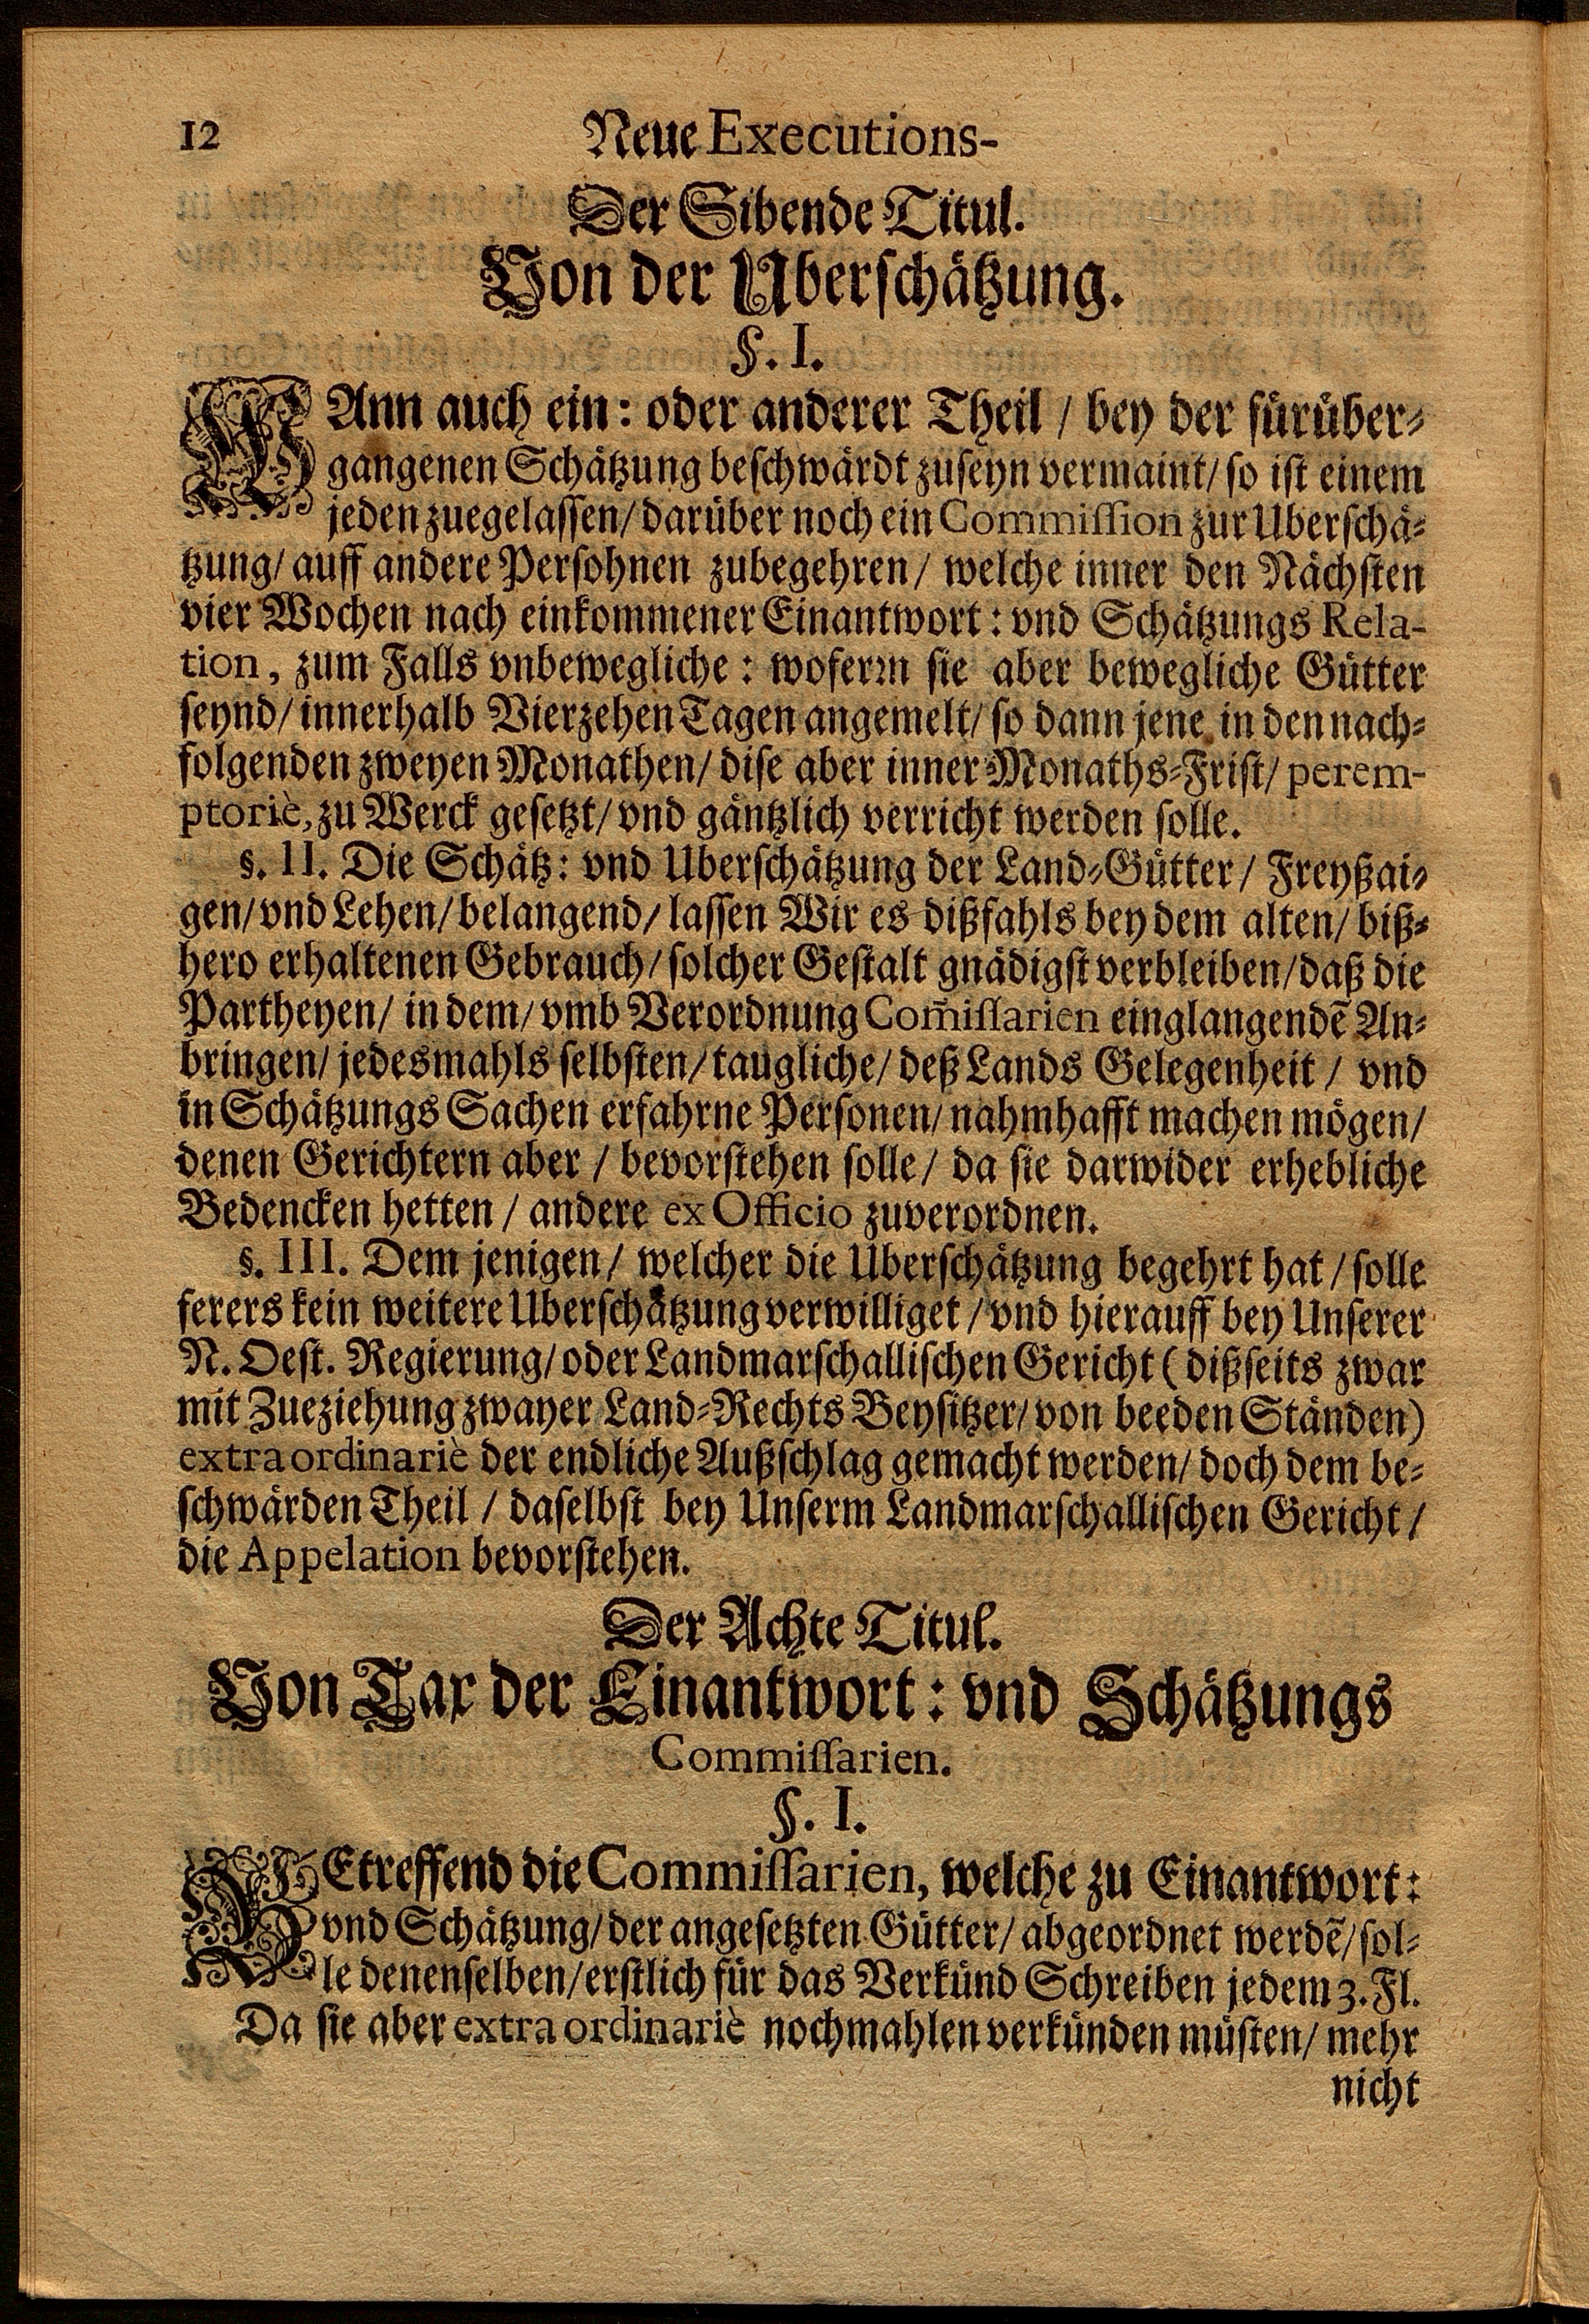 12 Neue Executions-
Der Sibende Titul.
Von der Uberschätzung.
§. I.
WAnn auch ein: oder anderer Theil / bey der fürüber-
gangenen Schätzung beschwärdt zuseyn vermaint/ so ist einem
jeden zuegelassen/ darüber noch ein Commission zur Uberschä-
tzung/ auff andere Persohnen zubegehren/ welche inner den Nächsten
vier Wochen nach einkommener Einantwort: vnd Schätzungs Rela-
tion, zum Falls vnbewegliche: woferrn sie aber bewegliche Gütter
seynd/ innerhalb Vierzehen Tagen angemelt/ so dann jene in den nach-
folgenden zweyen Monathen/ dise aber inner Monaths-Frist/ perem-
ptoriè, zu Werck gesetzt/ vnd gäntzlich verricht werden solle.
§. II. Die Schätz: vnd Uberschätzung der Land-Gütter/ Freyßai-
gen/ vnd Lehen/ belangend/ lassen Wir es dißfahls bey dem alten/ biß-
hero erhaltenen Gebrauch/ solcher Gestalt gnädigst verbleiben/ daß die
Partheyen/ in dem/ vmb Verordnung Com̃issarien einglangendẽ An-
bringen/ jedesmahls selbsten/ taugliche/ deß Lands Gelegenheit / vnd
in Schätzungs Sachen erfahrne Personen/ nahmhafft machen mögen/
denen Gerichtern aber / bevorstehen solle/ da sie darwider erhebliche
Bedencken hetten / andere ex Officio zuverordnen.
§. III. Dem jenigen/ welcher die Uberschätzung begehrt hat / solle
ferers kein weitere Uberschätzung verwilliget / vnd hierauff bey Unserer
N. Oest. Regierung/ oder Landmarschallischen Gericht ( dißseits zwar
mit Zueziehung zwayer Land-Rechts Beysitzer/ von beeden Ständen)
extra ordinariè der endliche Außschlag gemacht werden/ doch dem be-
schwärden Theil / daselbst bey Unserm Landmarschallischen Gericht /
die Appelation bevorstehen.
Der Achte Titul.
Von Tax der Einantwort: vnd Schätzungs
Commissarien.
§. I.
BEtreffend die Commissarien, welche zu Einantwort:
vnd Schätzung/ der angesetzten Gütter/ abgeordnet werdẽ/ sol-
le denenselben/ erstlich für das Verkünd Schreiben jedem 3. Fl.
Da sie aber extra ordinariè nochmahlen verkünden müsten/ mehr
nicht